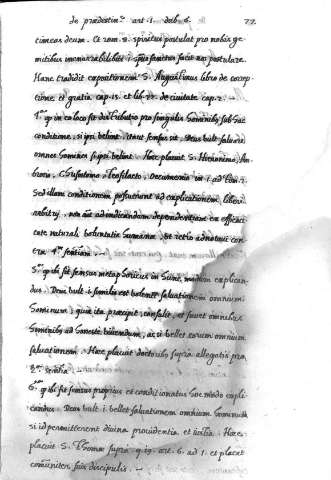 de prædestinne. art. 1. dub. 6. 77.
timeas deum. Et rom. 8. spiritus postulat pro nobis ge
mitibus inenarrabilibus i. spus sanctus facit nos postulare.
Hanc tradidit expositionem S. Augustinus libro de correp
tione et gratia cap. 15. et lib. 22. de civitate cap. 2.
4us qd in eo loco fit distributio pro singulis hominibus sub hac
conditione, si ipsi velint. itaut sensus sit. Deus vult salvare
omnes homines si ipsi velint. Hoc placuit S. Hieronimo, Am
brosio, Chrisostomo Teofilacto, Oecumenio in 1. ad Tim. 2.
Sed illam conditionem posuerunt ad explicationem liberi
arbitrij, non aut ad indicandam dependentiam ex efficaci
tate naturali voluntatis humanæ, ut tertio adnotavi con
tra 4am sentiam.
5us qd ibi fit sensus metaphoricus in hunc modum explican
dus. Deus vult i. similis est volenti salvationem omnium
hominum, quia ita præcipit, consulit, et favet omnibus
hominibus ad honeste vivendum, ac si vellet eorum omnium
salvationem. Hoc placuit doctoribus supra allegatis pro
2a sentia.
6us qd ibi fit sensus proprius et conditionatus hoc modo expli
candus. Deus vult i. vellet salvationem omnium hominum
si id permitterent divina providentia et iustitia. Hoc
placuit S. Thomæ supra q. 19. art. 6. ad 1. et placet
comuniter suis discipulis.